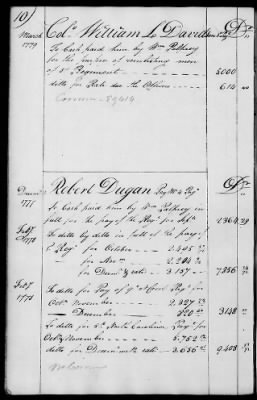 10)
March 1779
Col. William L. Davidson Dr
To Cash paid him by Wm Palfrey
for the purpose of reinlisting men
of 5th Regiment 5000
ditto for Rate due the Officers 614
Robert Dugan Pay Mr 4 Regt Dr
To Cash paid him by Wm Palfrey in
full for the pay of the Regt for Sept 2364
To ditto by ditto in full of the pay of
Regt for October 2.445
for Novr 2.204
for Decemr & rate 3.157 7.856
Feby 1778
To ditto for Pay of 9th Regt for
Octr November 2,327
December 820 3148
To ditto for 5th North Carolina Regt for
Octr November 5.752
ditto for Decemr with rate 3.656 9,408